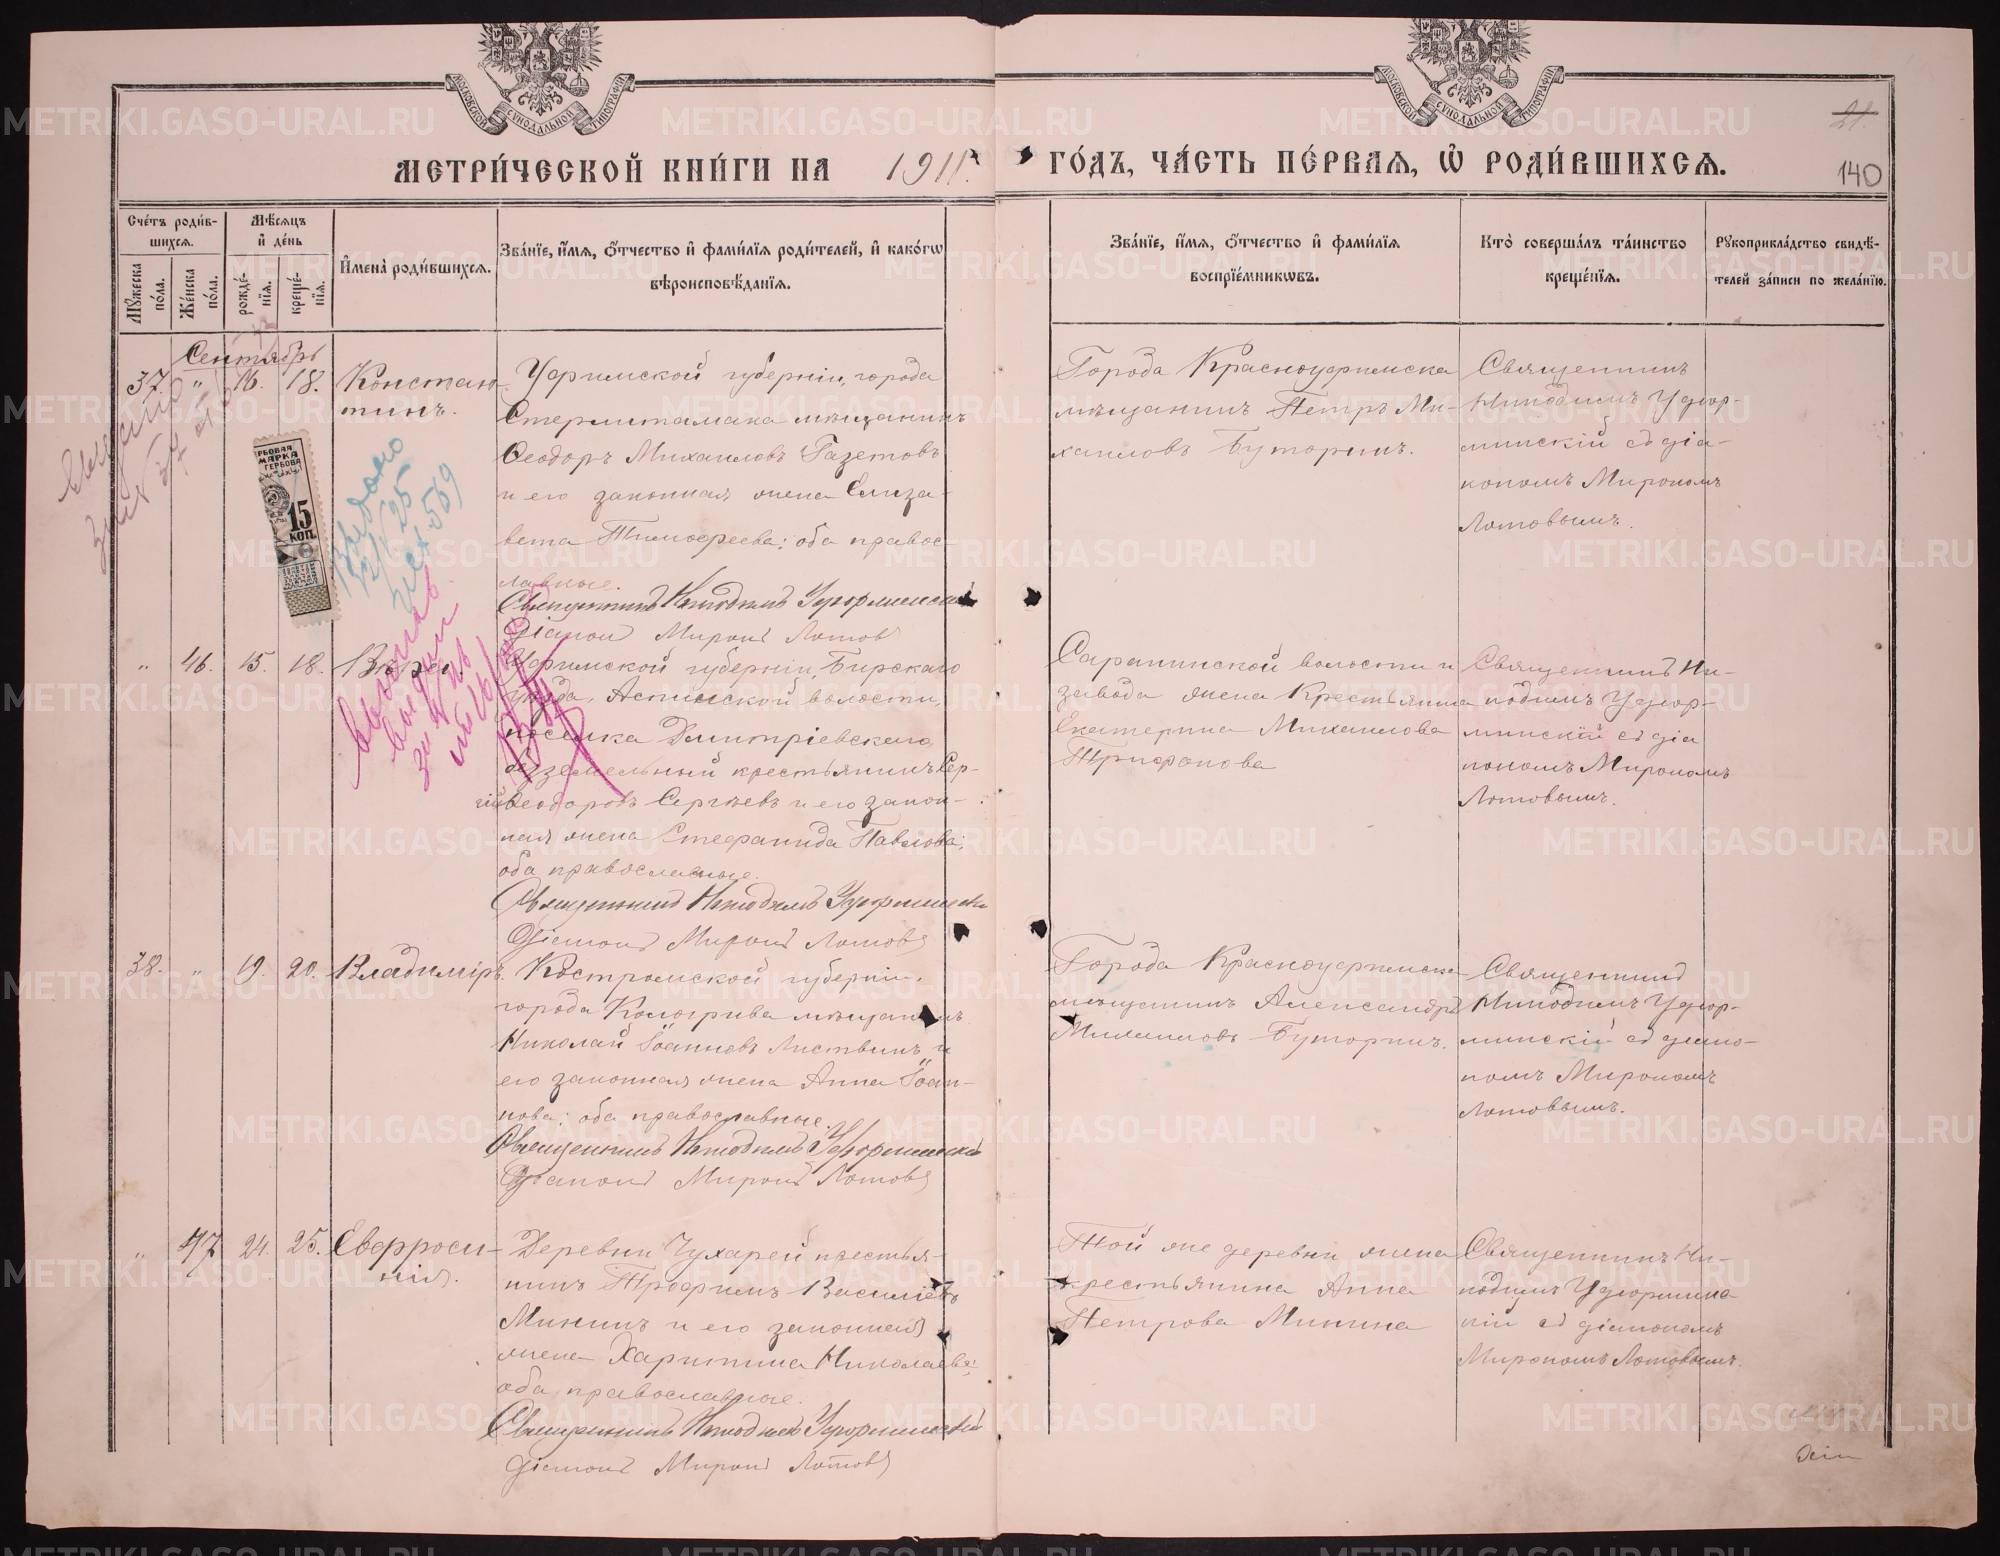 МОСКОВСКОЙ СѴНОДАЛЬНОЙ ТИПОГРАФІИ
МОСКОВСКОЙ СѴНОДАЛЬНОЙ ТИПОГРАФІИ
21.
МЕТРИ́ЧЕСКОЙ КНИ́ГИ НА 1911 г. ГО́ДЪ, ЧА́СТЬ ПЕ́РВАЯ, Ѡ РОДИ́ВШИХСЯ.
140
Сче́тъ роди́в-
шихся.
Мѣ́сяцъ
и де́нь
Мꙋ́жеска
по́ла.
Же́нска
по́ла.
рожде́-
нїя.
креще́-
нїя.
Имена̀ роди́вшихся.
Зва́нїе, и́мя, о́тчество и фами́лїя роди́телей, и како́гѡ
вѣроисповѣ́данїя.
Зва́нїе, и́мя, о́тчество и фами́лїя
воспрїе́мникѡвъ.
Кто̀ соверша́лъ та́инство
креще́нїя.
Рꙋкоприкла́дство свидѣ́-
телей за́писи по жела́нїю.
Сентябрь
37. " 16. 18. Констан-
тинъ.
Уфимской губерніи, города
Стерлитамака мѣщанинъ
Ѳеодоръ Михаиловъ Газетовъ
и его законная жена Елиза-
вета Тимоѳеева; оба правос-
лавные.
Священникъ Никодимъ Удюрминскій
Діаконъ Миронъ Лотовъ
Города Красноуфимска
мѣщанинъ Петръ Ми-
хаиловъ Буторинъ.
Священникъ
Никодимъ Удюр-
минскій съ діа-
кономъ Мирономъ
Лотовымъ.
ГЕРБОВАЯ
МАРКА
15
КОП.
" 46. 15. 18. Вѣра
Уфимской губерніи, Бирскаго
уѣзда, Аскинской волости,
поселка Дмитріевскаго
безземельный крестьянинъ Сер-
гій Ѳеодоровъ Сергѣевъ и его закон-
ная жена Стефанида Павлова;
оба православные.
Священникъ Никодимъ Удюрминскій
Діаконъ Миронъ Лотовъ
Саранинской волости и
завода жена крестьянина
Екатерина Михаилова
Трифонова
Священникъ Ни-
кодимъ Удюр-
минскій съ діа
кономъ Мирономъ
Лотовымъ.
38. " 19. 20. Владиміръ.
Костромской губерніи,
города Кологрива мѣщанинъ
Николай Іоанновъ Листвинъ и
его законная жена Анна Іоан-
нова; оба православные.
Священникъ Никодимъ Удюрминскій
Діаконъ Миронъ Лотовъ
Города Красноуфимска
мѣщанинъ Александръ
Михаиловъ Буторинъ.
Священникъ
Никодимъ Удюр-
минскій съ діако-
номъ Мирономъ
Лотовымъ.
" 47 24. 25. Евфроси-
нія.
Деревни Чухарей крестья-
нинъ Трофимъ Василіевъ
Мининъ и его законная
жена Харитина Николаева;
оба православные.
Священникъ Никодимъ Удюрминскій
Діаконъ Миронъ Лотовъ
Той же деревни жена
крестьянина Анна
Петрова Минина
Священникъ Ни-
кодимъ Удюрминс
кій съ діакономъ
Мирономъ Лотовымъ.
METRIKI.GASO-URAL.RU